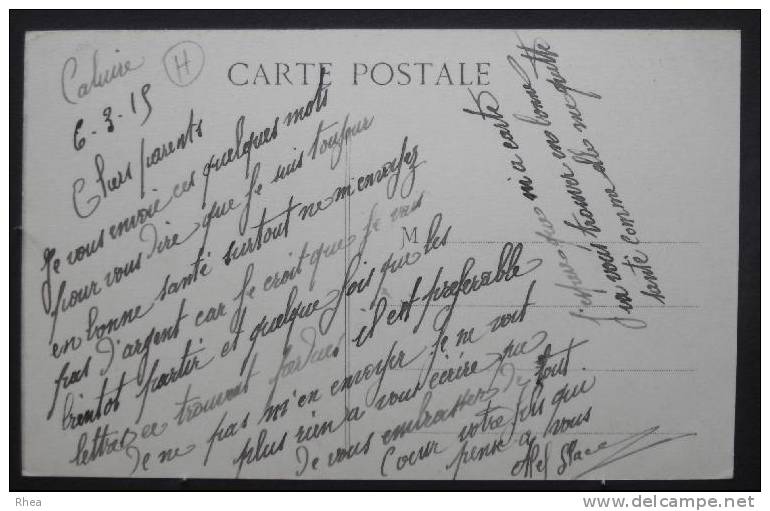 Caluire
H
CARTE POSTALE
6-3-15
Chers parents
Je vous envoie ces quelques mots
pour vous dire que je suis toujour
en bonne santé surtout ne m'envoyez
pas d'argent car je croit que je vais
bientot partir et quelque fois que les
lettres ce trouvent perdues il est preferable
de ne pas m'en envoyer je ne voit
plus rien a vous écrire
Je vous embrasser de tout
Coeur votre fils qui
pense a vous
M
J'espere que m a carte
va vous trouver en bonne
santé comme elle me quitte
Rhea
www.delcampe.net